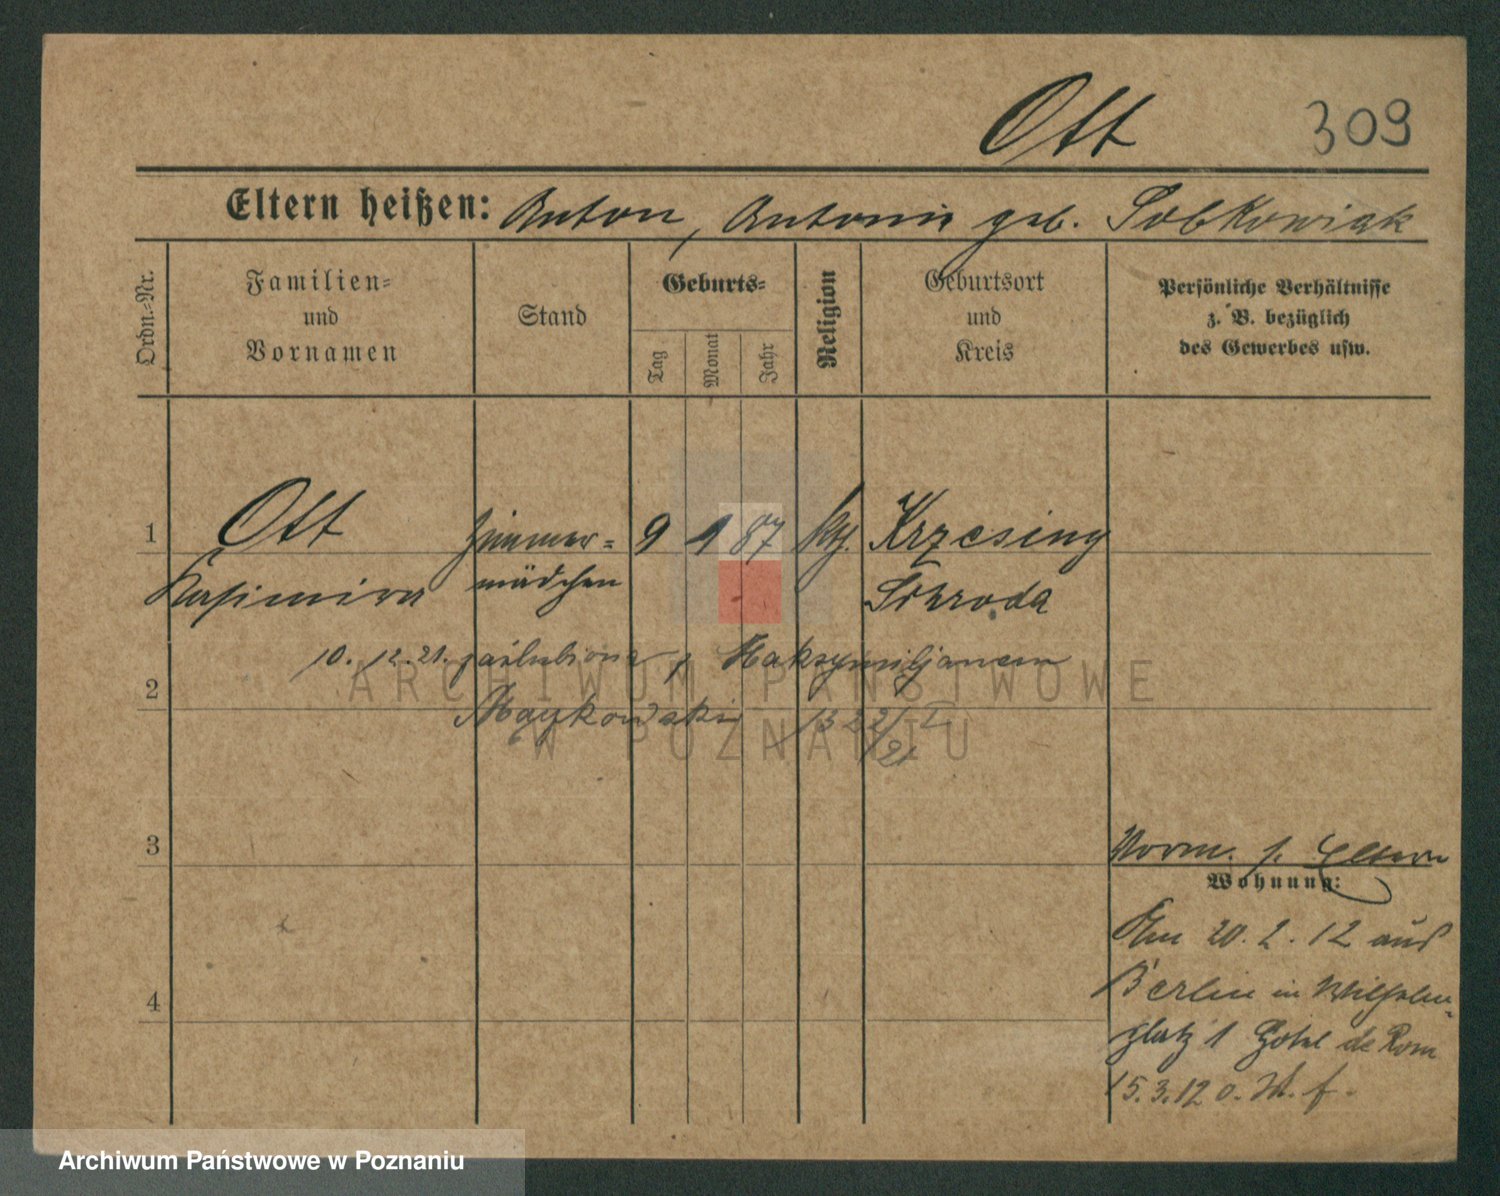 Ott 309
Eltern heißen: Anton, Antonie geb. Sobkowiak
Ordn.-Nr.
Familien-
und
Vornamen
Stand
Geburts-
Tag
Monat
Jahr
Religion
Geburtsort
und
Kreis
Persönliche Verhältnisse
z. B. bezüglich
des Gewerbes usw.
1 Ott Zimmer- 9 1 87 kth. Krzesiny
Kasimira mädchen Schroda
10. 12. 21. zaślubiona z Maksymiljanem
2
1322/I
21
3
Vorm. s. Eltern
Wohnung:
Am 20. 2. 12 aus
Berlin in Wilhelm-
4
platz 1 Hotel de Rom
15. 3. 12 o. W. f.
ARCHIWUM PAŃSTWOWE
W POZNANIU
Archiwum Państwowe w Poznaniu